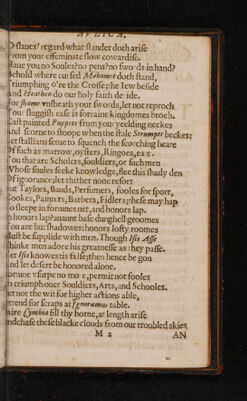 AVLICA.
O slaues! regard what slander doth arise
From your effeminate slow cowardise.
Haue you no Soules? no pens? no swords in hand?
Behold where cursed Mahomet doth stand,
Triumphing o're the Crosse; the Iew beside
And Heathen do our holy faith deride.
For shame vnsheath your swords, let not reproch
Your sluggish ease is forraine kingdomes broch.
Cast painted Puppits from your yeelding neckes
And scorne to stoope when the stale Strumpet beckes;
Let stallians serue to squench the scorching heate
Of such as marrow, oysters, Ringoes, eate.
You that are Scholers, souldiers, or such men
Whose soules seeke knowledge, flee this shady den
Of ignorance; let thither none resort
But Taylors, Bauds, Perfumers, fooles for sport,
Cookes, Painters, Barbers, Fidlers; these may hap
To sleepe in fortunes net, and honors lap.
In honors lap? auaunt base dunghell groomes
You are but shaddowes: honors lofty roomes
Must be supplide with men. Though Isis Asse
Thinke men adore his greatnesse as they passe.
Yet Isis knowes tis false; then hence be gon
And let desert be honored alone.
Fortune vsurpe no more, permit not fooles
To triumph ouer Souldiers, Arts, and Schooles.
Let not the wit for higher actions able,
Attend for scraps at Ignoramus table.
Faire Cynthia fill thy horne, at length arise
And chase these blacke clouds from our troubled skies
M 2 AN